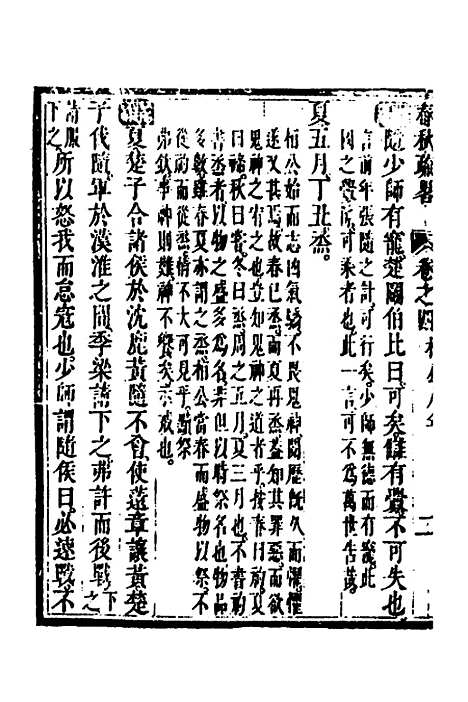 春秋疏畧 卷之四 桓公八年 二
隨少師有寵楚鬭伯比曰可矣讎有釁不可失也
言前年張隨之計可行矣少師無德而有寵此
國之釁所可乘者也此一言可不為萬世告誡
夏五月丁丑烝。
桓公始而志凶氣驕不畏鬼神閱歷既久而懼懼
遂又甚焉故春已烝而夏再烝蓋知其罪惡而欲
鬼神之宥之也豈知鬼神之道者乎按春曰礿夏
曰禘秋曰嘗冬曰烝周之五月夏三月也不書礿
書烝者以物之盛多為名非但以時祭名也物品
多斂雖春夏亦謂之烝桓公當春而盛物以祭不
從礿而從烝情不大可見乎瀆祭
弗欽事神則難神不饗矣示戒也。
夏楚子合諸侯於沈鹿黃隨不會使薳章讓黃楚
子伐隨軍於漢淮之間季梁請下之弗許而後戰下之
請服所以怒我而怠寇也少師謂隨侯曰必速戰不